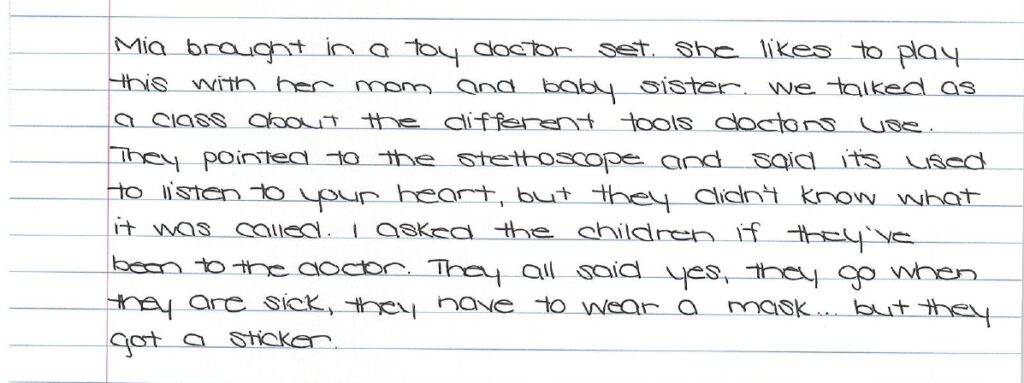 Mia brought in a toy doctor set. She likes to play
this with her mom and baby sister. We talked as
a class about the different tools doctors use.
They pointed to the stethoscope and said it's used
to listen to your heart, but they didn't know what
it was called. I asked the children if they've
been to the doctor. They all said yes, they go when
they are sick, they have to wear a mask... but they
got a sticker.